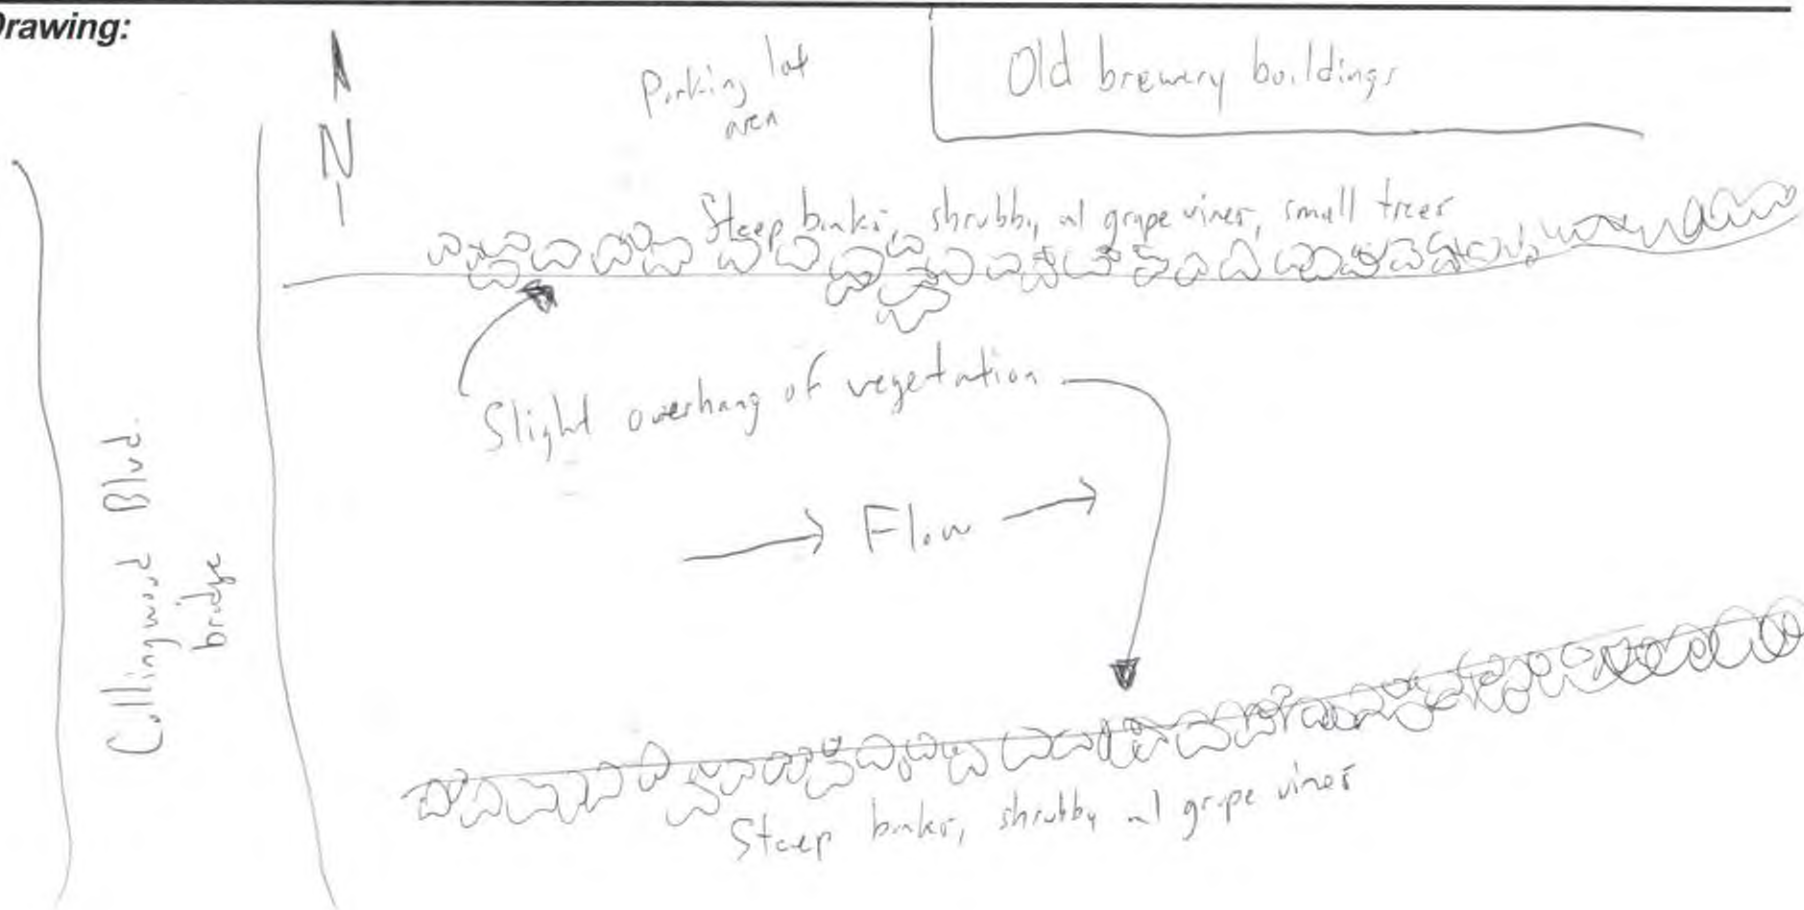 Drawing:
N
Parking lot
area
Old brewery buildings
Steep banks, shrubby, w/ grape vines, small trees
Slight overhang of vegetation
Flow
Collingwood Blvd.
bridge
Steep banks, shrubby w/ grape vines